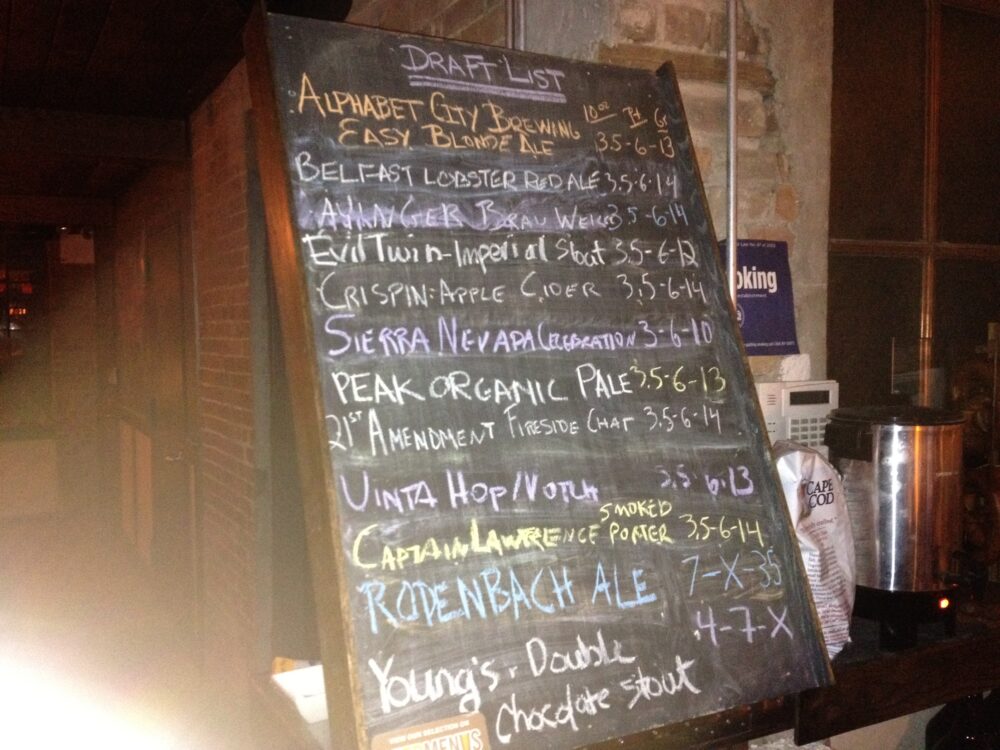 DRAFT LIST
ALPHABET CITY BREWING 10oz Pt Gr
EASY BLONDE ALE 3.5-6-13
BELFAST LOBSTER RED ALE 3.5-6-14
AYINGER BRAU WEISS 3.5-6-14
Evil Twin-Imperial Stout 3.5-6-12
CRISPIN: APPLE CIDER 3.5-6-14
SIERRA NEVADA CELEBRATION 3-6-10
PEAK ORGANIC PALE 3.5-6-13
21ST AMENDMENT FIRESIDE CHAT 3.5-6-14
UINTA HOP/NOTCH 3.5-6-13
CAPTAIN LAWRENCE SMOKED PORTER 3.5-6-14
RODENBACH ALE 7-X-35
Young's. Double 4-7-X
chocolate stout
oking
CAPE
COD
VIEW OUR SELECTION ON
MENUS